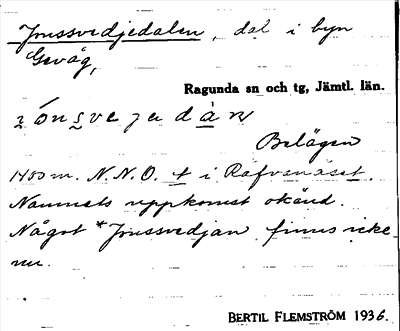 Jonssvedjedalen, dal i byn
Gevåg,
Ragunda sn och tg, Jämtl. län.
Belägen
1450 m. N.N.O. t i Räfvanäset.
Namnets uppkomst okänd.
Något *Jonssvedjan finns icke
nu.
BERTIL FLEMSTRÖM 1936.